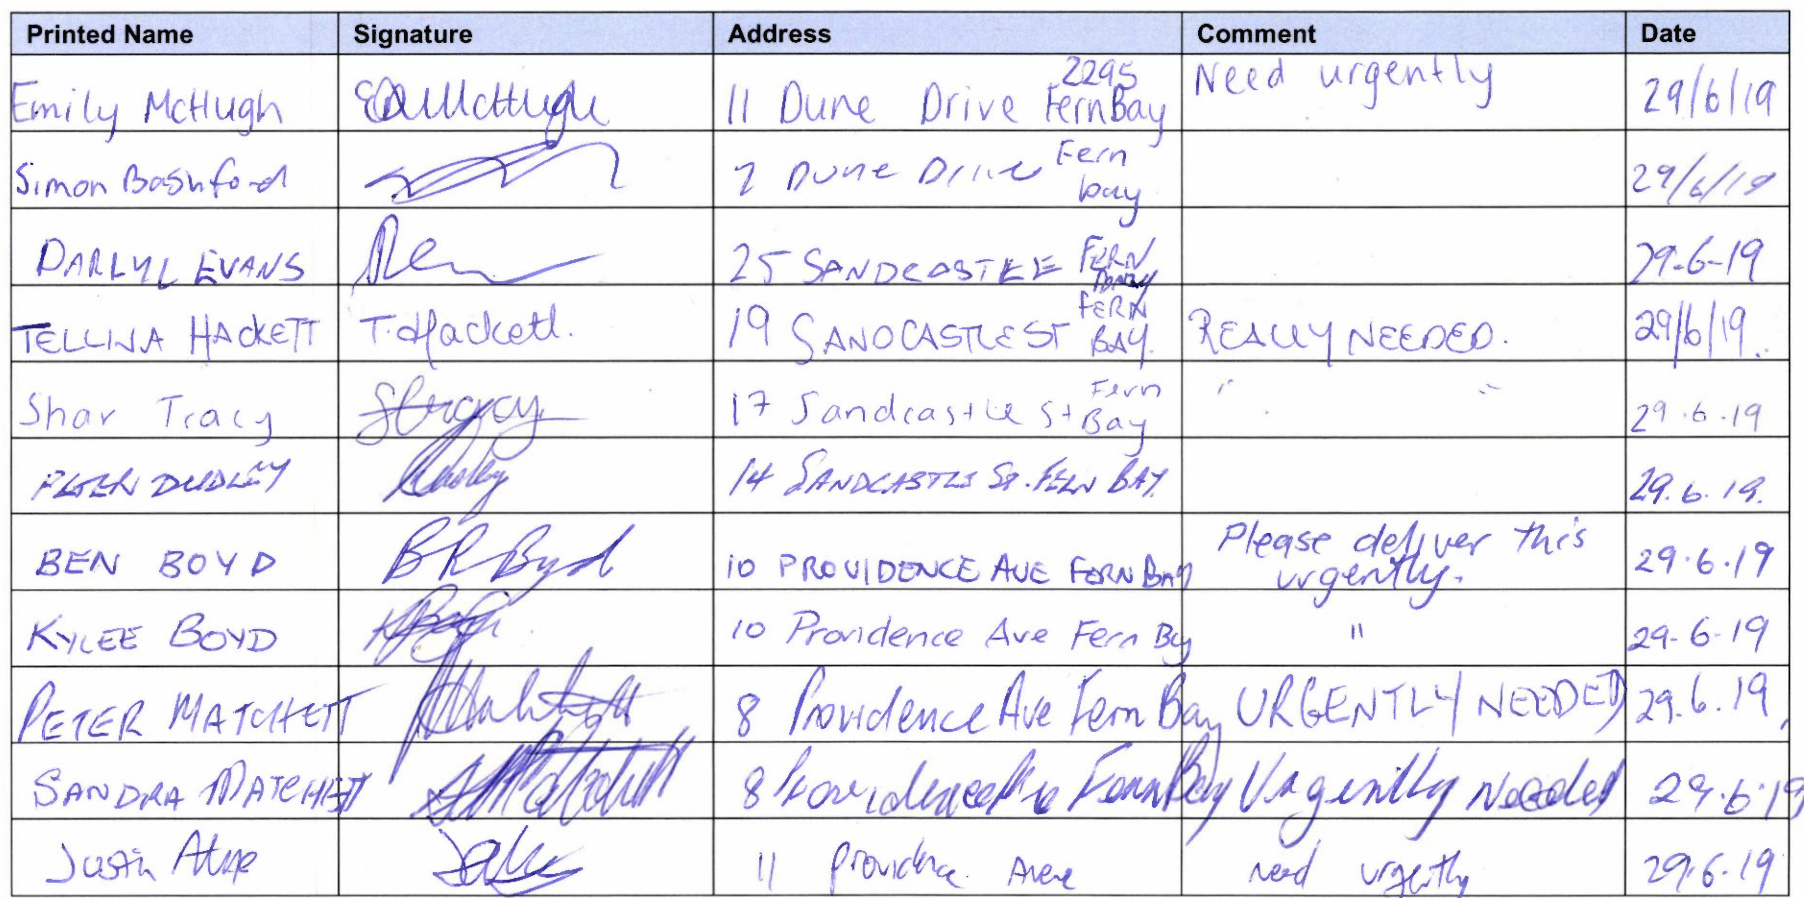 Printed Name Signature Address Comment Date
Emily McHugh EMcHugh 11 Dune Drive 2295 Fern Bay Need urgently 29/6/19
Simon Bashford 7 Dune Drive Fern bay 29/6/19
DARLYL EVANS 25 SANDCASTLE FERN BAY 29-6-19
TELLINA HACKETT T. Hackett. 19 SANDCASTLE ST FERN BAY. REALLY NEEDED. 29/6/19.
Shar Tracy STracy 17 Sandcastle St Fern Bay " " 29.6.19
PETER DUDLEY Dudley 14 SANDCASTLE ST. FERN BAY. 29.6.19.
BEN BOYD BR Boyd 10 PROVIDENCE AVE FERN BAY Please deliver this urgently. 29.6.19
KYLEE BOYD 10 Providence Ave Fern Bay " 29-6-19
PETER MATCHETT 8 Providence Ave Fern Bay URGENTLY NEEDED 29.6.19,
SANDRA MATCHETT SMatchett 8 Providence Ave Fern Bay Urgently Needed 29.6.19
Justin 11 Providence need urgently 29.6.19